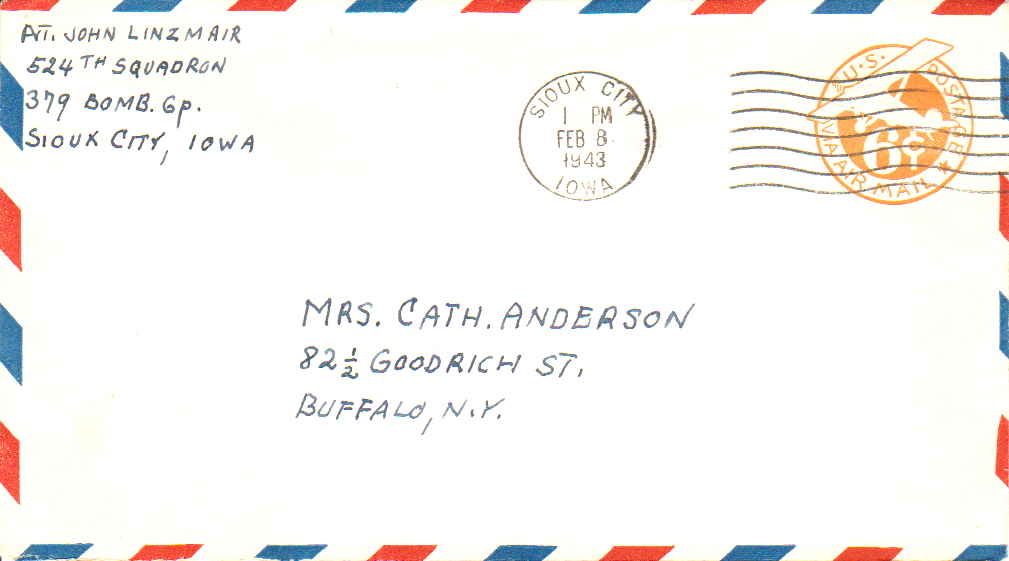 PVT. JOHN LINZMAIR
524TH SQUADRON
379 BOMB. Gp.
SIOUX CITY, IOWA
SIOUX CITY
1 PM
FEB 8
1943
IOWA
U.S. POSTAGE
6¢
VIA AIR MAIL
MRS. CATH. ANDERSON
82½ GOODRICH ST.
BUFFALO, N.Y.